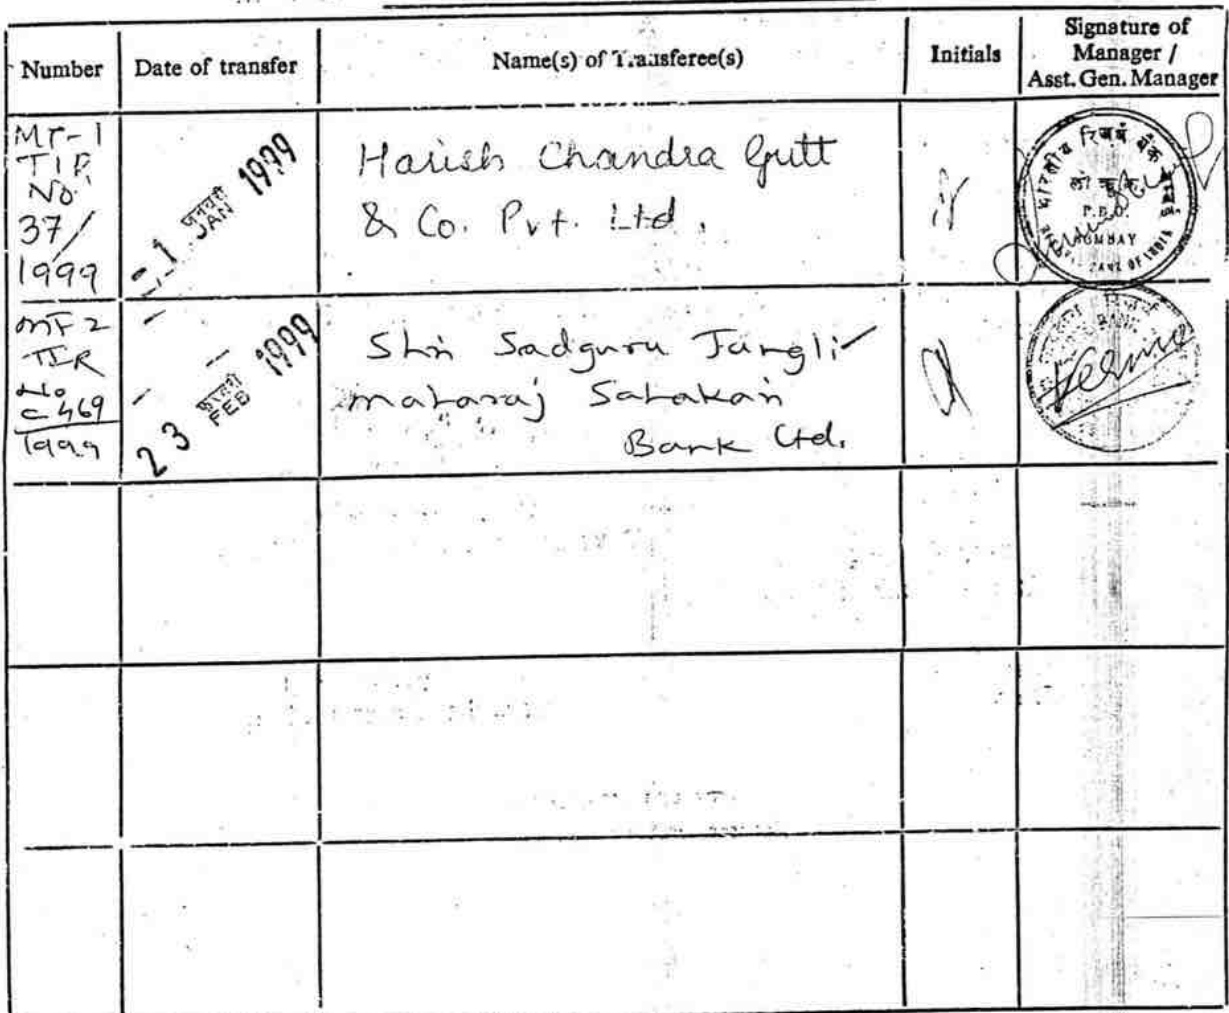 Number
Date of transfer
Name(s) of Transferee(s)
Initials
Signature of
Manager /
Asst. Gen. Manager
MT-1
TIR
No
37/
1999
1 जनवरी 1999
JAN
Harish Chandra Gutt
& Co. Pvt. Ltd.
भारतीय रिज़र्व बैंक
P.D.O.
BOMBAY
BANK OF INDIA
MT 2
TIR
No
C 469
1999
23 फरवरी 1999
FEB
Shri Sadguru Jangli
maharaj Sahakari
Bank Ltd.
BANK